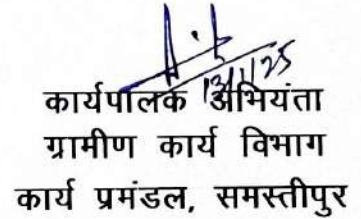 13/1/25
कार्यपालक अभियंता
ग्रामीण कार्य विभाग
कार्य प्रमंडल, समस्तीपुर